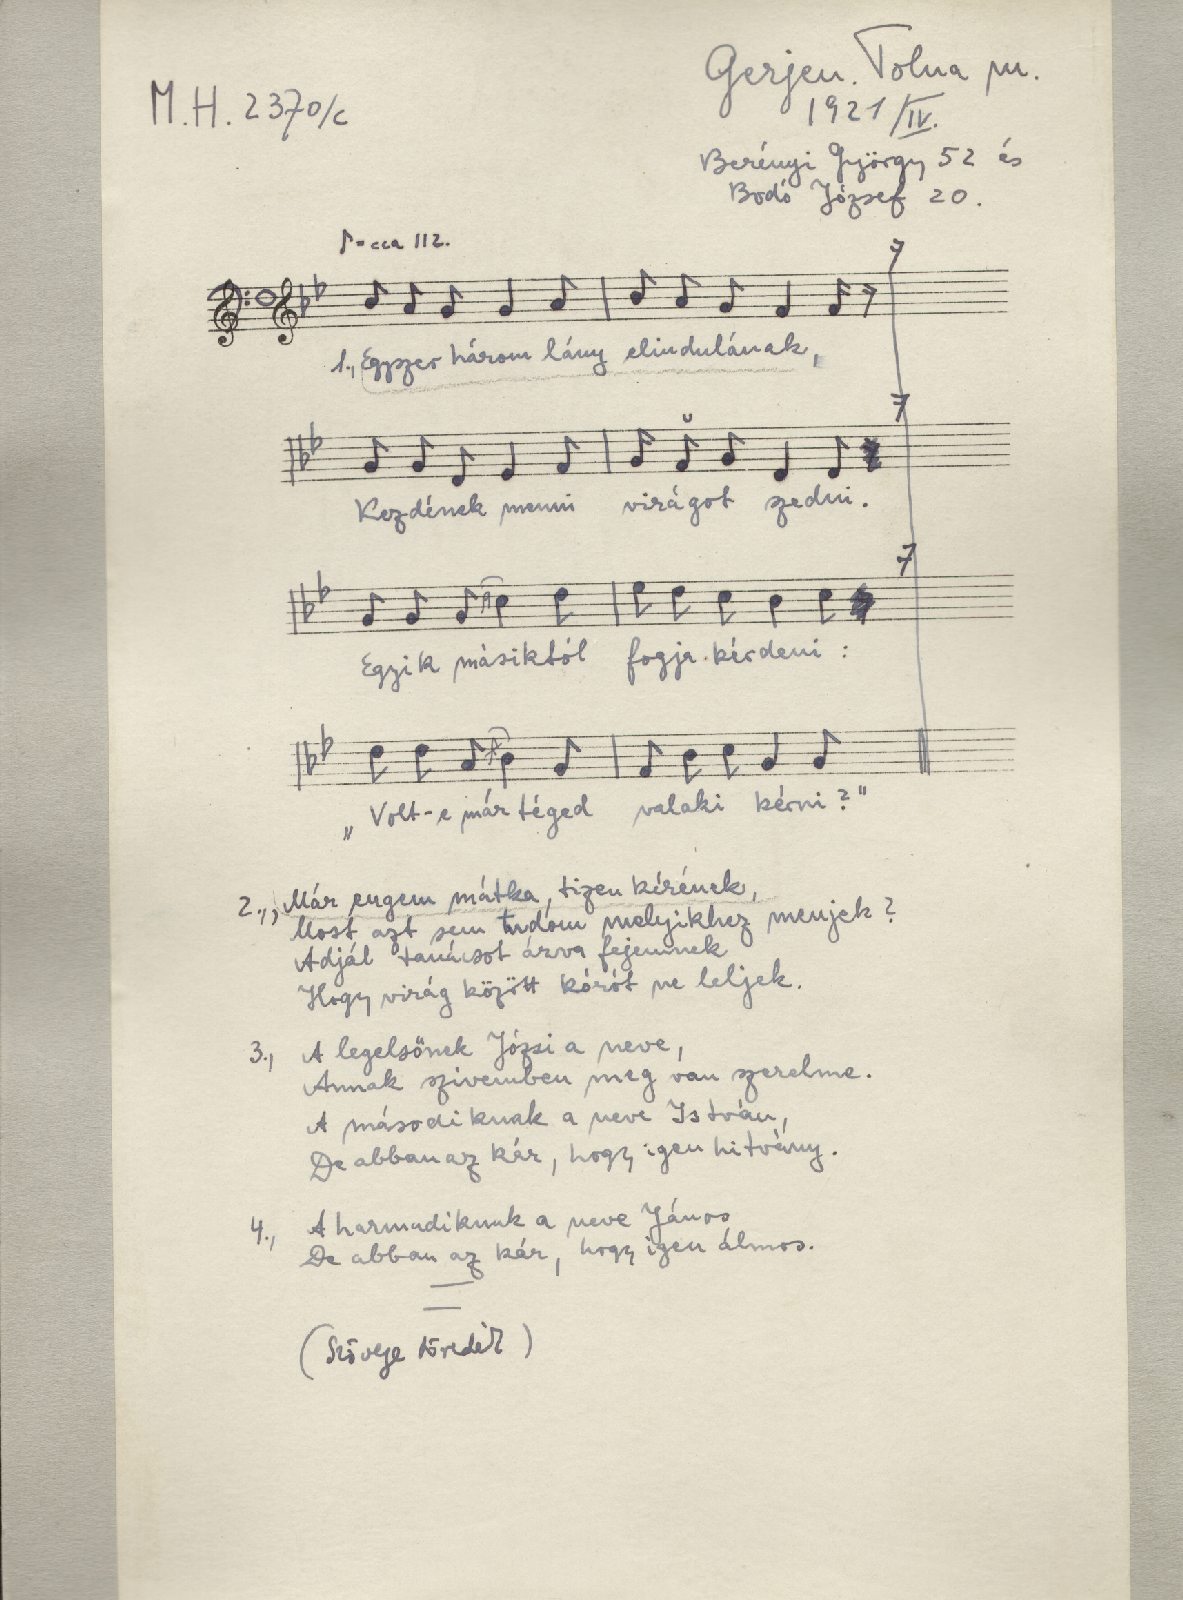 M.H. 2370/c
Gerjen. Tolna m.
1921/IV.
Berényi György 52 és
Bodó József 20.
♪=cca 112.
7
1., Egyszer három lány elindulának,
7
Kezdének menni virágot szedni.
7
Egyik másiktól fogja kérdeni:
„Volt-e már téged valaki kérni?"
2., „Már engem mátka, tizen kérének,
Most azt sem tudom melyikhez menjek?
Adjál tanácsot árva fejemnek
Hogy virág között kórót ne leljek.
3., A legelsőnek Józsi a neve,
Annak szivemben meg van szerelme.
A másodiknak a neve István,
De abban az kár, hogy igen hitvány.
4., A harmadiknak a neve János
De abban az kár, hogy igen álmos.
(Szövege töredék)